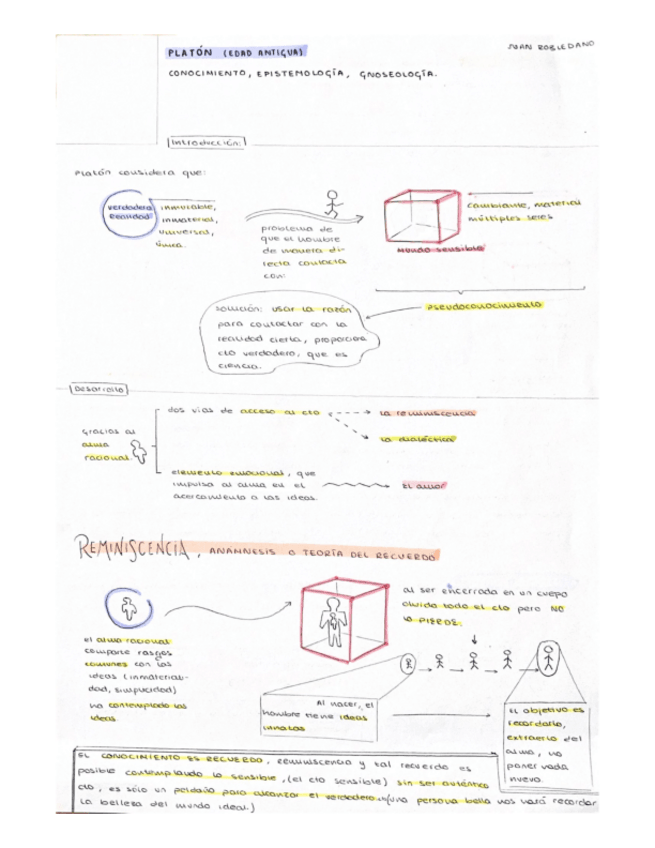 PLATÓN (EDAD ANTIGUA)
JUAN ROBLEDANO
CONOCIMIENTO, EPISTEMOLOGÍA, GNOSEOLOGÍA.
Introducción:
Platón considera que:
verdadera
realidad:
inmutable,
inmaterial,
universal,
única.
problema de
que el hombre
de manera di-
recta contacta
con:
cambiante, material
múltiples seres
mundo sensible
pseudoconocimiento
solución: usar la razón
para contactar con la
realidad cierta, proporciona
cto verdadero, que es
ciencia.
Desarrollo
gracias al
alma
racional.
dos vías de acceso al cto
la reminiscencia
la dialéctica
elemento emocional, que
impulsa al alma en el
acercamiento a las ideas.
el amor
REMINISCENCIA, ANAMNESIS O TEORÍA DEL RECUERDO
el alma racional
comparte rasgos
comunes con las
ideas (inmateriali-
dad, simplicidad)
ha contemplado las
ideas
al ser encerrada en un cuerpo
olvida todo el cto pero NO
lo PIERDE.
Al nacer, el
hombre tiene ideas
innatas
EL objetivo es
recordarlo,
extraerlo del
alma, no
poner nada
nuevo.
EL CONOCIMIENTO ES RECUERDO, reminiscencia y tal recuerdo es
posible contemplando lo sensible, (el cto sensible) sin ser auténtico
cto, es sólo un peldaño para alcanzar el verdadero. (una persona bella nos hará recordar
la belleza del mundo ideal.)